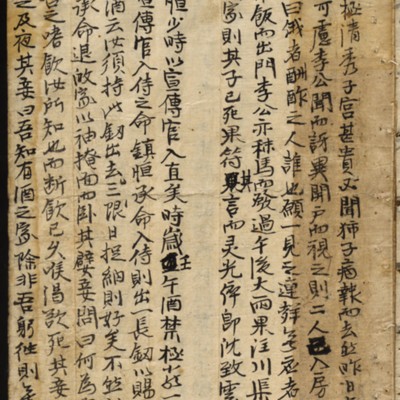 極淸秀子宮甚貴必聞獅子痛報而去然昨日
可慮李公聞而訝異開戶而視之則二人已入房
曰俄者酬酢之人誰也願一見之
飯而出門李公亦秣馬而發過午後大雨果注川渠
家則其子已死果符其言而灵光倅卽沈致雲
恒少時以宣傳官入直英時歲壬午酒禁極嚴一
宣傳官入侍之命鎭恒承命入侍則出一長劒以賜
酒云汝須持此劒出去三限日捉納則好矣不然
承命退家以袖掩面而卧其嬖妾問曰何為
之嗜飮汝所知也而断飮已久喉渴欲死其妾
之及夜其妾曰吾知有酒之家除非吾躬往則